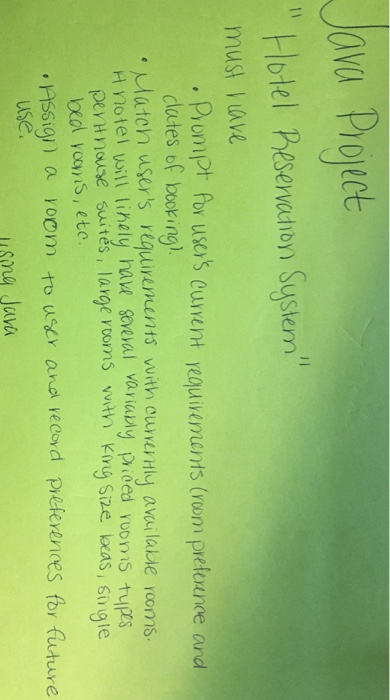 Java Project
"Hotel Reservation System"
must have
• Prompt for user's current requirements (room preference and
dates of booking).
• Match user's requirements with currently available rooms.
A hotel will likely have several variably priced rooms types
penthouse suites, large rooms with King Size beds, single
bed rooms, etc.
• Assign a room to user and record preferences for future
use.
using Java